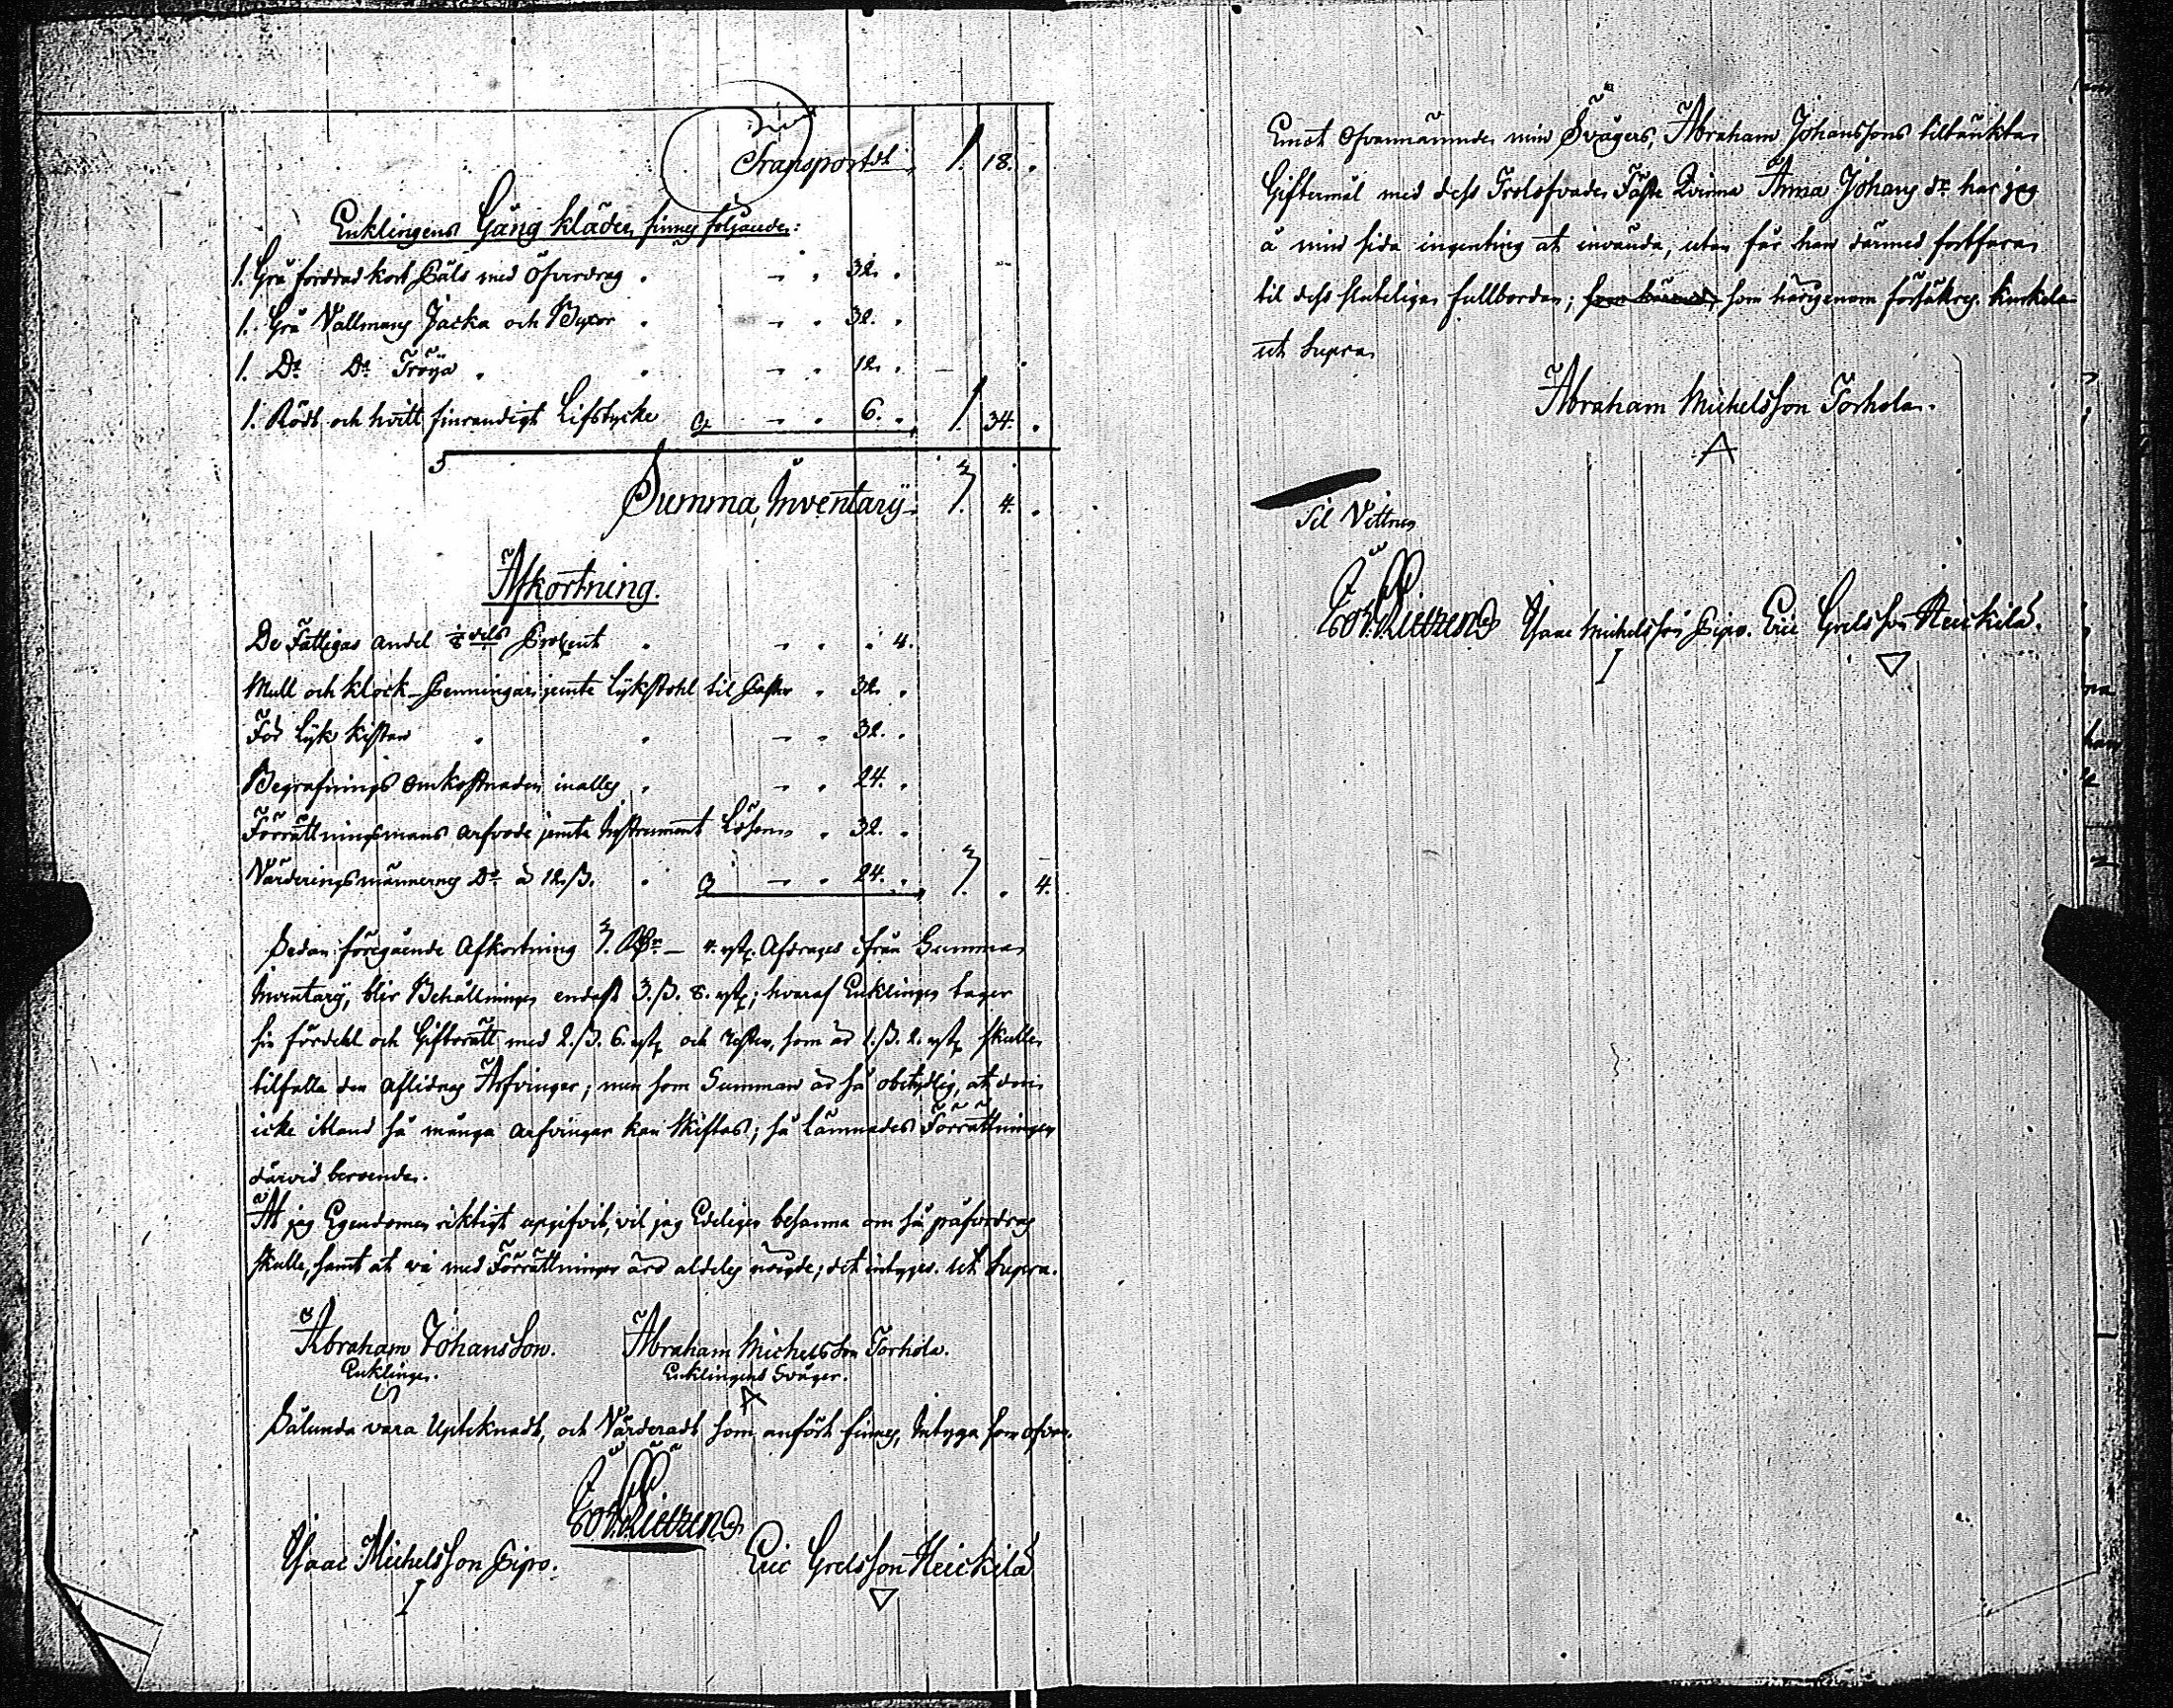 Transportdt 1. 18. "
Enklingens Gång kläder finnes följande:
1. Grå fordrad kort Päls med Öfverdrag " — " 32. "
1. Grå Vallmans Jacka och Byxor " — " 32. "
1. Do Do Tröija " " — " 12. "
1. Rödt och hvitt finrandigt Lifstycke — " 6. " 1. 34. "
Summa Inventarÿ 3. 4. "
Afkortning.
De Fattigas andel 1/8 dels Procent " — " " 4.
Mull och Klock-Penningar jemte Lijkstohl til Pastor " 32. "
För Lijk kistan " " — " 32. "
Begrafnings omkostnaden inalles " — " 24. "
Förrättningsmans arfvode jemte Instrument Lösen " 32. "
Värderingsmännernes Do à 12 ß. " — " 24. " 3. " 4.
Sedan föregående Afkortning 3. Rdr — 4. rst. Afdrages ifrån Summa
Inventarÿ, blir Behållningen endast 3. ß. 8. rst; hvaraf Enklingen tager
sin fördehl och Giftorätt med 2. ß. 6. rst och resten, som är 1. ß. 2. rst skulle
tilfalla den aflidnes Arfvingar; men som Summan är så obetydlig, at den
icke ibland så många arfvingar kan skiftas; så lämnades Förrättningen
därvid beroende.
At jag Egendomen riktigt uppgifvit, vil jag Edeligen besanna om så påfordras
skulle, samt at vi med Förrättningen äro aldeles nöigde; det intygas. Ut Supra.
Abraham Johansson. Abraham Michelsson Torhola.
Enklingen. Enklingens Svåger.
A
Sålunda vara Upteknadt, och Värderadt som anfört finnes, Intyga som ofvan.
Isaac Michelsson Pipo. Eric Grelsson Heickilä
I ▽
Emot ofvannämnde min Svågers, Abraham Johanssons tiltänkta
Giftermål med dess Trolofvade Fäste Qvinna Anna Johans dr har jag
å min sida ingenting at invända, utan får han därmed fortfara
til dess sluteliga fullbordan; som härigenom försäkras. Kurkela
ut Supra
Abraham Michelsson Torhola.
A
Til Vittnen
Isaac Michelsson Pipo. Eric Grelsson Heickilä.
I ▽